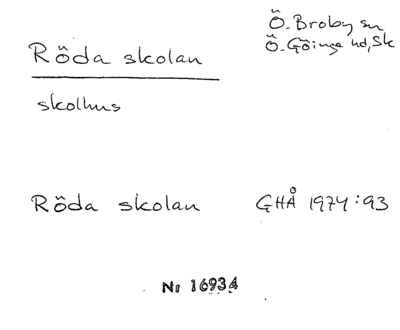 Ö. Broby sn
Ö. Göinge hd, Sk
Röda skolan
skolhus
Röda skolan GHÅ 1974:93
Nr 16934